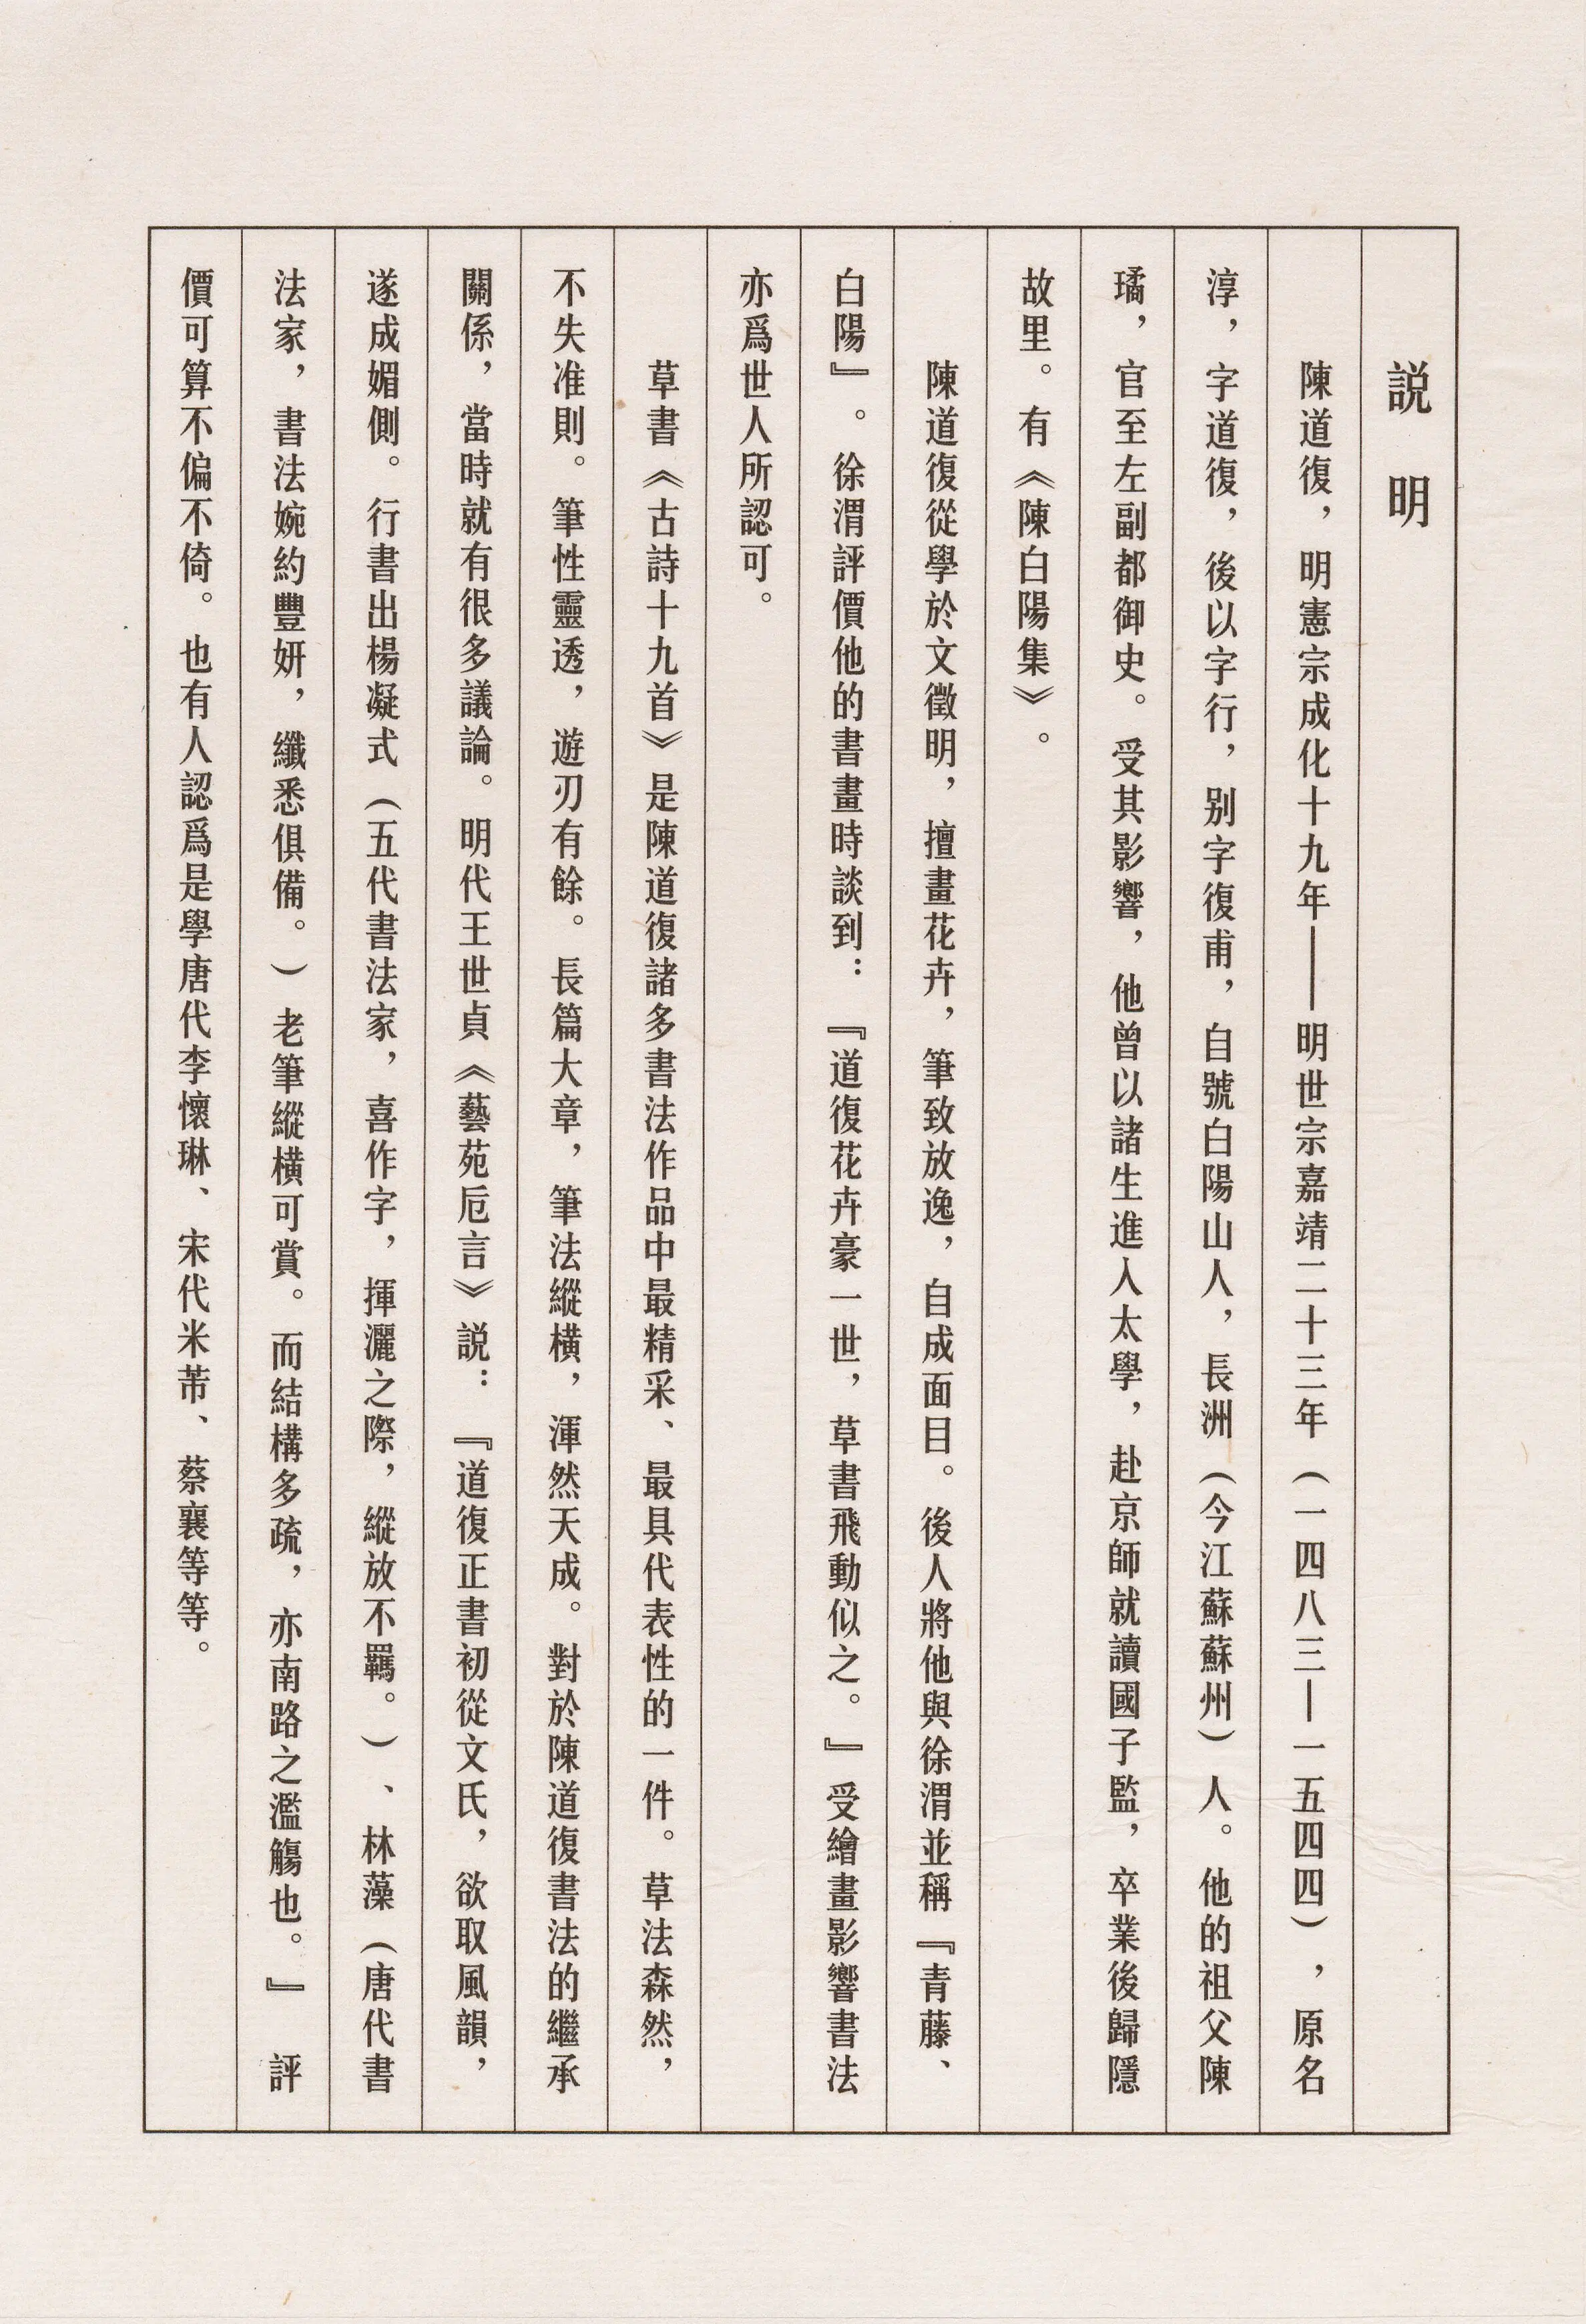 説　明
陳道復，明憲宗成化十九年——明世宗嘉靖二十三年（一四八三—一五四四），原名
淳，字道復，後以字行，别字復甫，自號白陽山人，長洲（今江蘇蘇州）人。他的祖父陳
璚，官至左副都御史。受其影響，他曾以諸生進入太學，赴京師就讀國子監，卒業後歸隱
故里。有《陳白陽集》。
陳道復從學於文徵明，擅畫花卉，筆致放逸，自成面目。後人將他與徐渭並稱『青藤、
白陽』。徐渭評價他的書畫時談到：『道復花卉豪一世，草書飛動似之。』受繪畫影響書法
亦爲世人所認可。
草書《古詩十九首》是陳道復諸多書法作品中最精采、最具代表性的一件。草法森然，
不失准則。筆性靈透，遊刃有餘。長篇大章，筆法縱横，渾然天成。對於陳道復書法的繼承
關係，當時就有很多議論。明代王世貞《藝苑卮言》説：『道復正書初從文氏，欲取風韻，
遂成媚側。行書出楊凝式（五代書法家，喜作字，揮灑之際，縱放不羈。）、林藻（唐代書
法家，書法婉約豐妍，纖悉俱備。）老筆縱横可賞。而結構多疏，亦南路之濫觴也。』評
價可算不偏不倚。也有人認爲是學唐代李懷琳、宋代米芾、蔡襄等等。